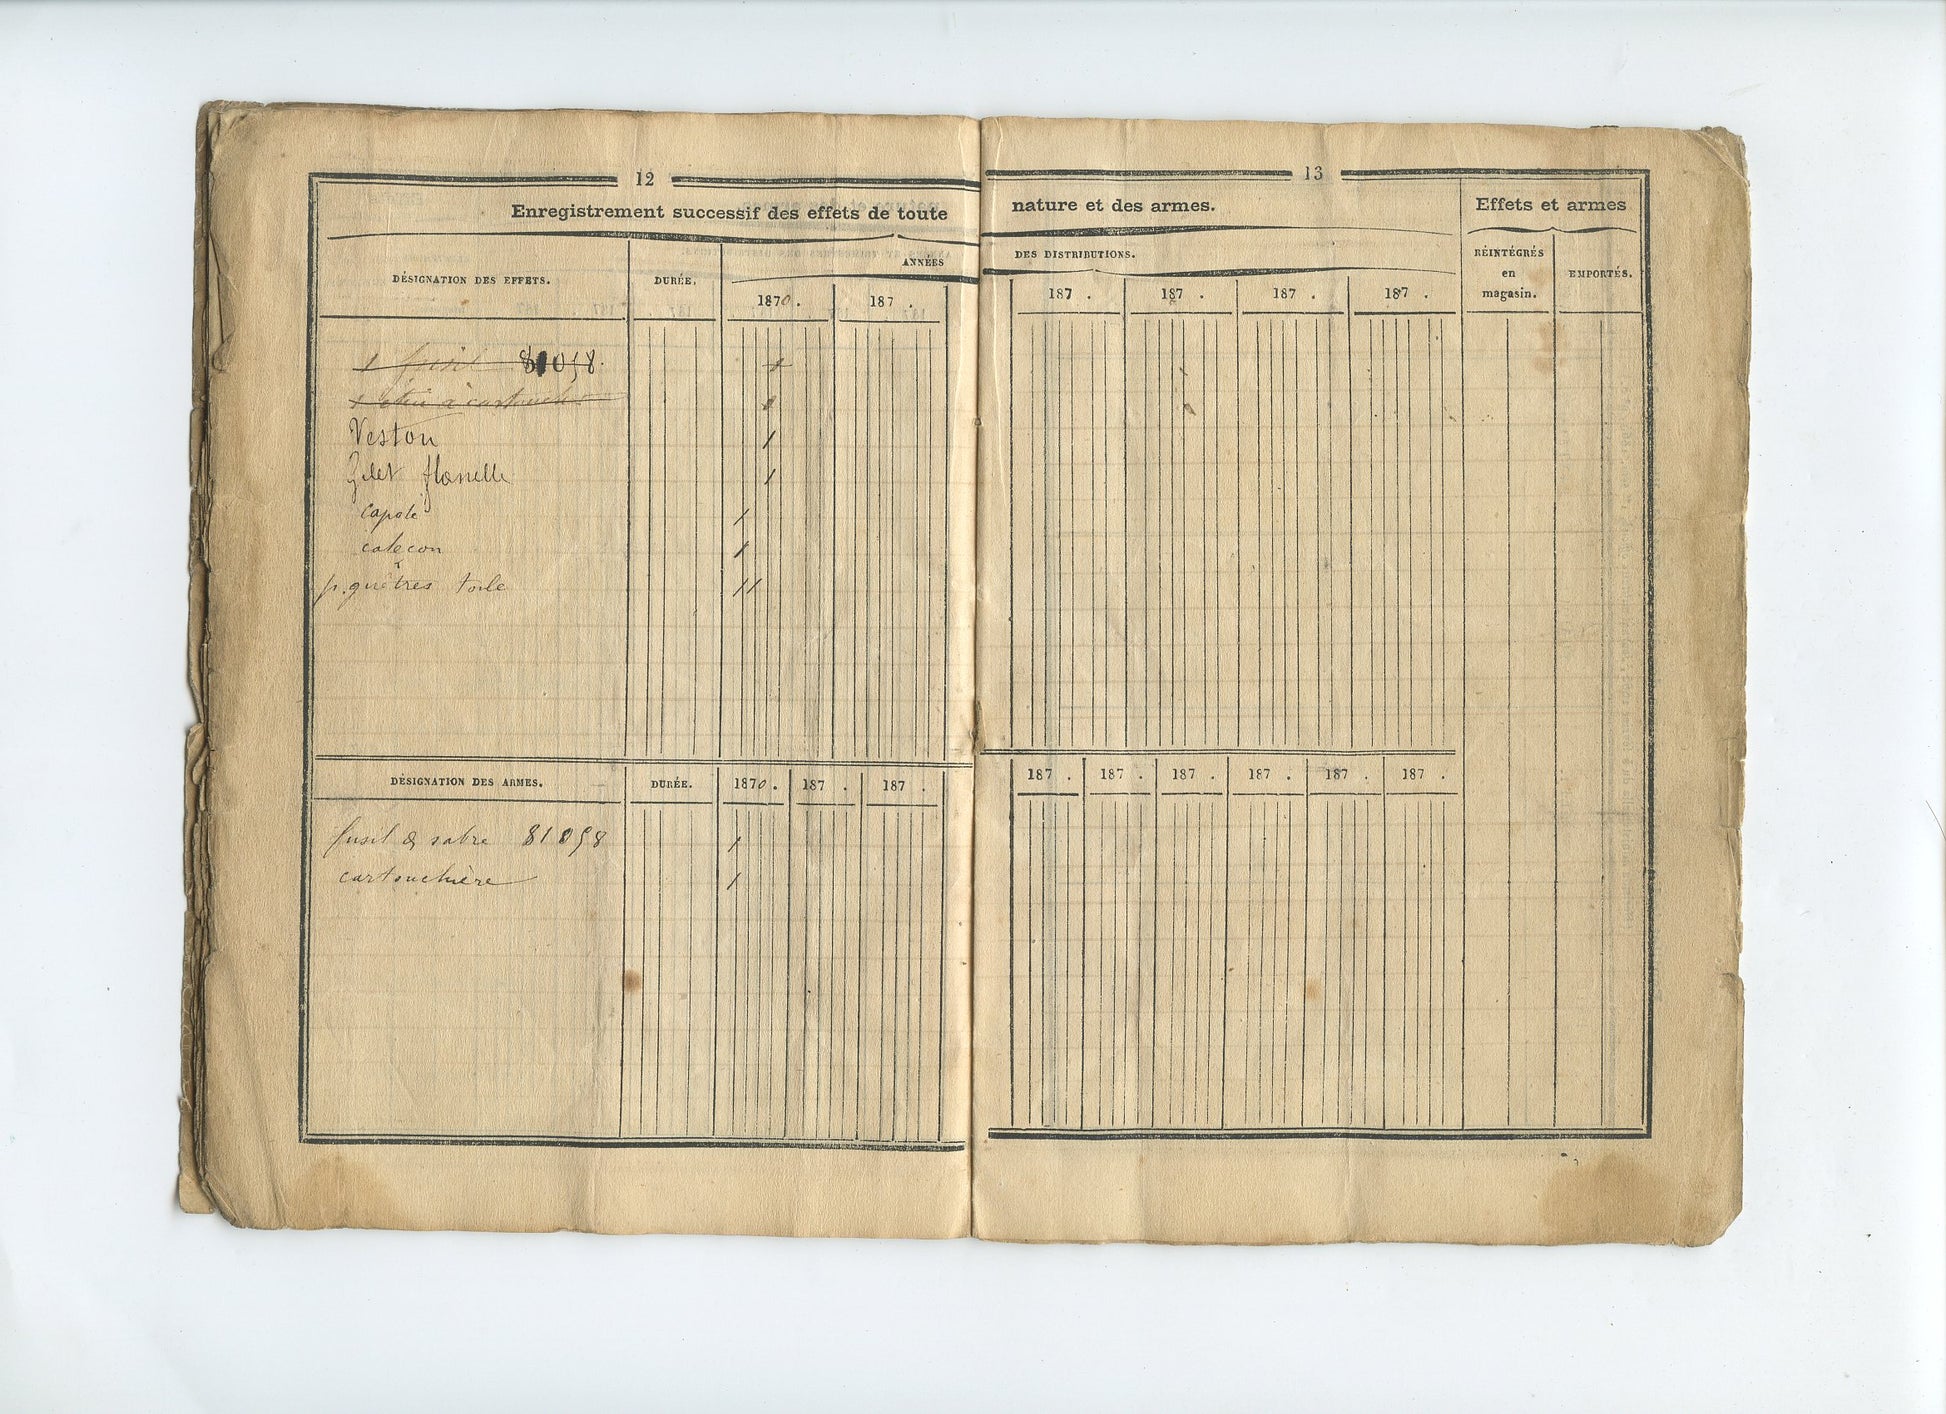 12
13
Enregistrement successif des effets de toute nature et des armes.
Effets et armes
DÉSIGNATION DES EFFETS.
DURÉE.
ANNÉES DES DISTRIBUTIONS.
RÉINTÉGRÉS
en
magasin.
EMPORTÉS.
1870.
187 .
187 .
187 .
187 .
187 .
1 fusil 81058.
1 étui à cartouche
Veston
Gilet flanelle
capote
caleçon
p. guêtres toile
DÉSIGNATION DES ARMES.
DURÉE.
1870.
187 .
187 .
187 .
187 .
187 .
187 .
187 .
187 .
fusil & sabre 81058
cartouchière